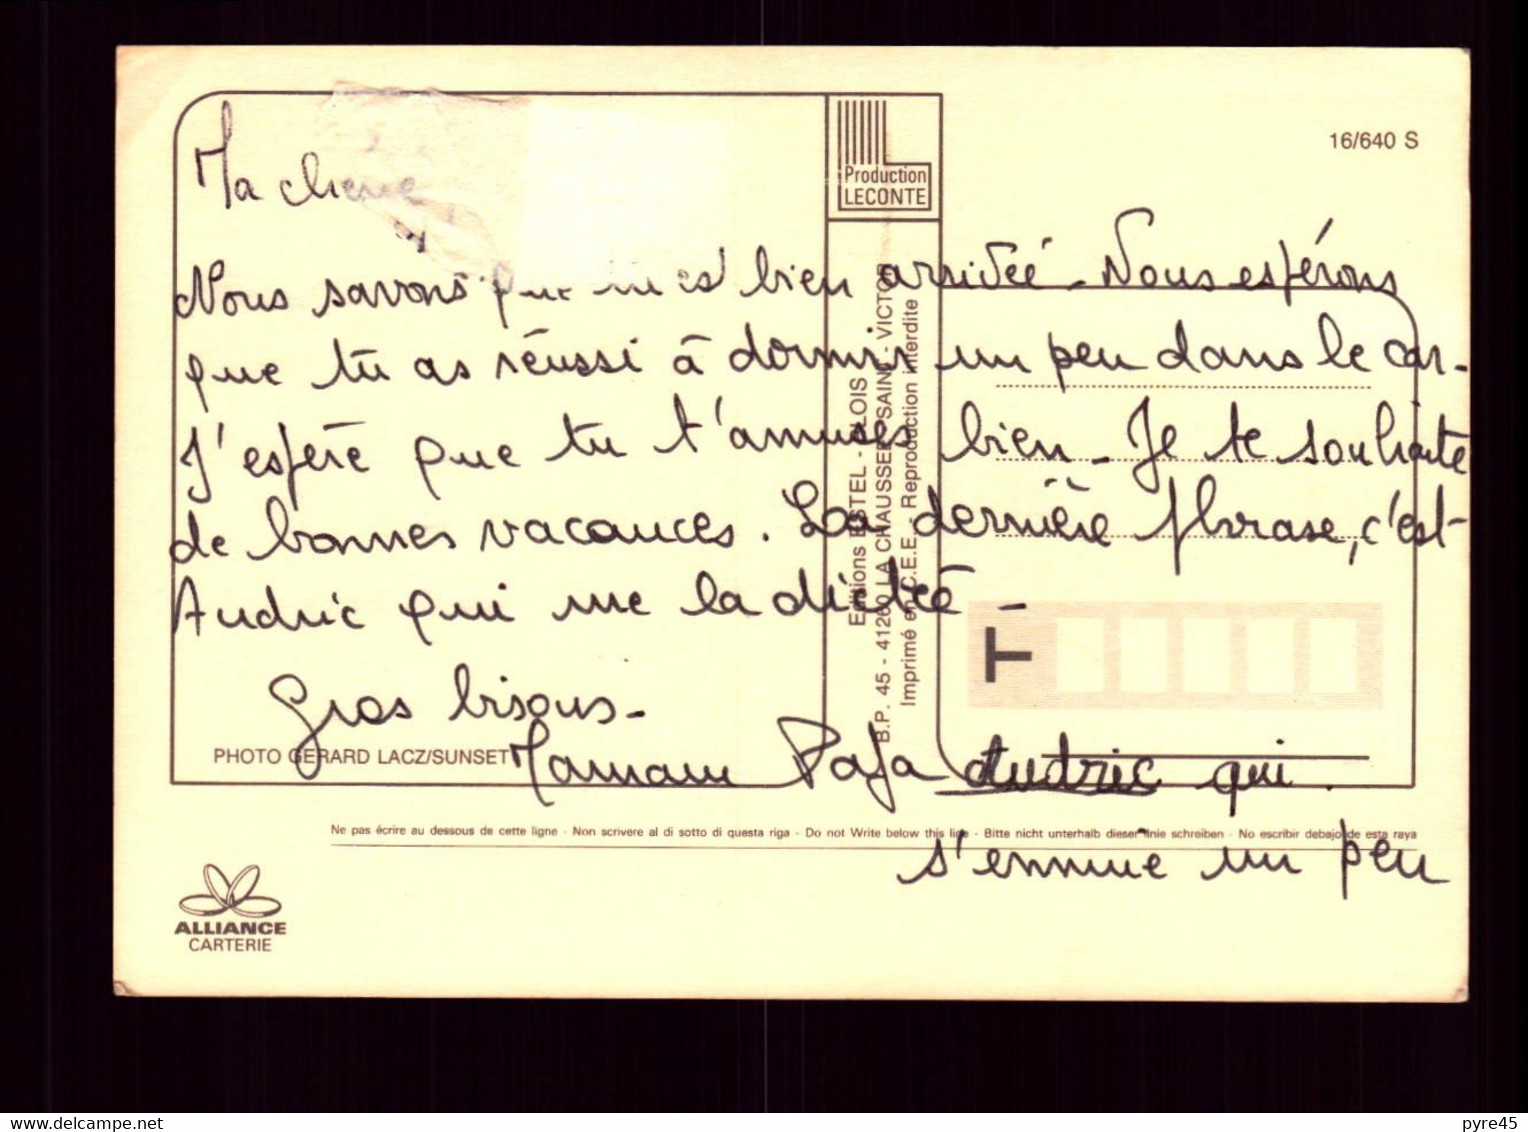 16/640 S
Production
LECONTE
Ma cherie
Nous savons que tu es bien arrivée - Nous espérons
que tu as réussi à dormir un peu dans le car -
J'espère que tu t'amuses bien - Je te souhaite
de bonnes vacances. La dernière phrase, c'est
Audric qui me la dictée -
Gros bisous -
Maman Papa Audric qui
s'ennuie un peu
Editions ESTEL - BLOIS
B.P. 45 - 41260 LA CHAUSSEE SAINT-VICTOR
Imprimé en C.E.E. - Reproduction interdite
T
PHOTO GERARD LACZ/SUNSET
Ne pas écrire au dessous de cette ligne - Non scrivere al di sotto di questa riga - Do not Write below this line - Bitte nicht unterhalb dieser linie schreiben - No escribir debajo de esta raya
ALLIANCE
CARTERIE
delcampe.net
pyre45